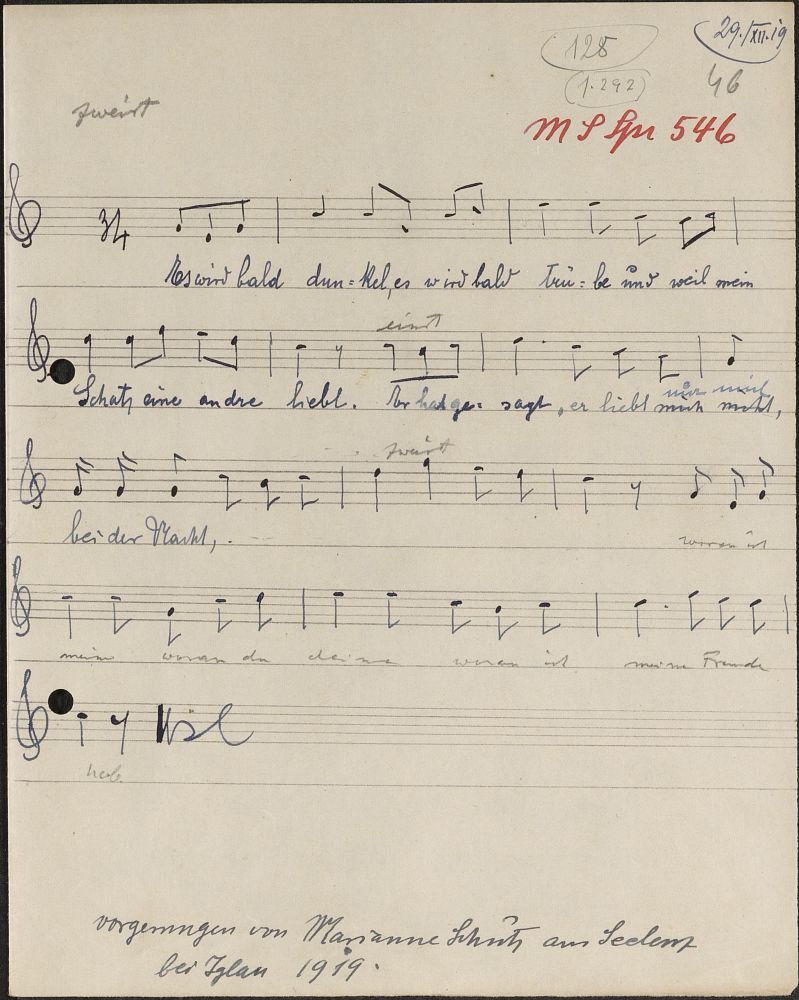 128
29./XII.19
(1.292)
46
zweist
M S Spr 546
3/4
Es wird bald dun=kel, es wird bald trü=be und weil mein
einst
Schatz eine andre liebt. Er hat ge= sagt, er liebt mich nicht,
nur mich
zweist
bei der Nacht,
woran ist
meine woran du deine woran ist meine Freude
vorgesungen von Marianne Schütz aus Seelenz
bei Iglau 1919.